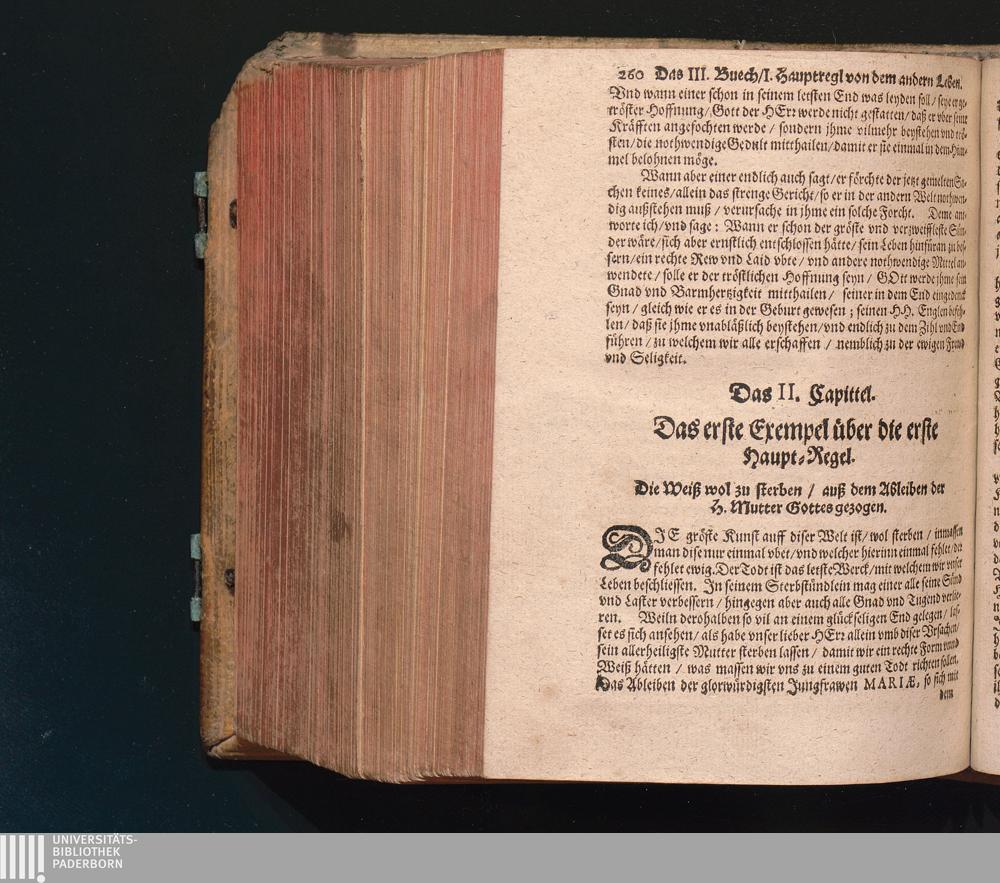 260 Das III. Buech/I. Hauptregl von dem andern Leben.
Vnd wann einer schon in seinem letsten End was leyden soll / seye er ge-
tröster Hoffnung / Gott der HErr werde nicht gestatten / daß er vber seine
Kräfften angefochten werde / sondern jhme vilmehr beystehen vnd trö-
sten / die nothwendige Gedult mitthailen / damit er sie einmal in dem Him-
mel belohnen möge.
Wann aber einer endlich auch sagt / er förchte der jetzt gemelten Sa-
chen keines / allein das strenge Gericht / so er in der andern Welt nothwen-
dig außstehen muß / verursache in jhme ein solche Forcht. Deme ant-
worte ich / vnd sage : Wann er schon der gröste vnd verzweiffleste Sün-
der wäre / sich aber ernstlich entschlossen hätte / sein Leben hinfüran zu bes-
sern / ein rechte Rew vnd Laid vbte / vnd andere nothwendige Mittel an-
wendete / solle er der tröstlichen Hoffnung seyn / GOtt werde jhme sein
Gnad vnd Barmhertzigkeit mitthailen / seiner in dem End eingedenck
seyn / gleich wie er es in der Geburt gewesen ; seinen HH. Englen befeh-
len / daß sie jhme vnabläßlich beystehen / vnd endlich zu dem Zihl vnd End
führen / zu welchem wir alle erschaffen / nemblich zu der ewigen Frewd
vnd Seligkeit.
Das II. Capittel.
Das erste Exempel über die erste
Haupt-Regel.
Die Weiß wol zu sterben / auß dem Ableiben der
H. Mutter Gottes gezogen.
DIE gröste Kunst auff diser Welt ist / wol sterben / inmassen
man dise nur einmal vbet / vnd welcher hierinn einmal fehlet / der
fehlet ewig. Der Todt ist das letste Werck / mit welchem wir vnser
Leben beschliessen. In seinem Sterbstündlein mag einer alle seine Sünd
vnd Laster verbessern / hingegen aber auch alle Gnad vnd Tugend verlie-
ren. Weiln derohalben so vil an einem glückseligen End gelegen / las-
set es sich ansehen / als habe vnser lieber HErr allein vmb diser Vrsachen /
sein allerheiligste Mutter sterben lassen / damit wir ein rechte Form vnnd
Weiß hätten / was massen wir vns zu einem guten Todt richten sollen.
Das Ableiben der glorwürdigsten Jungfrawen MARIÆ, so sich mit
dem
UNIVERSITÄTS-
BIBLIOTHEK
PADERBORN